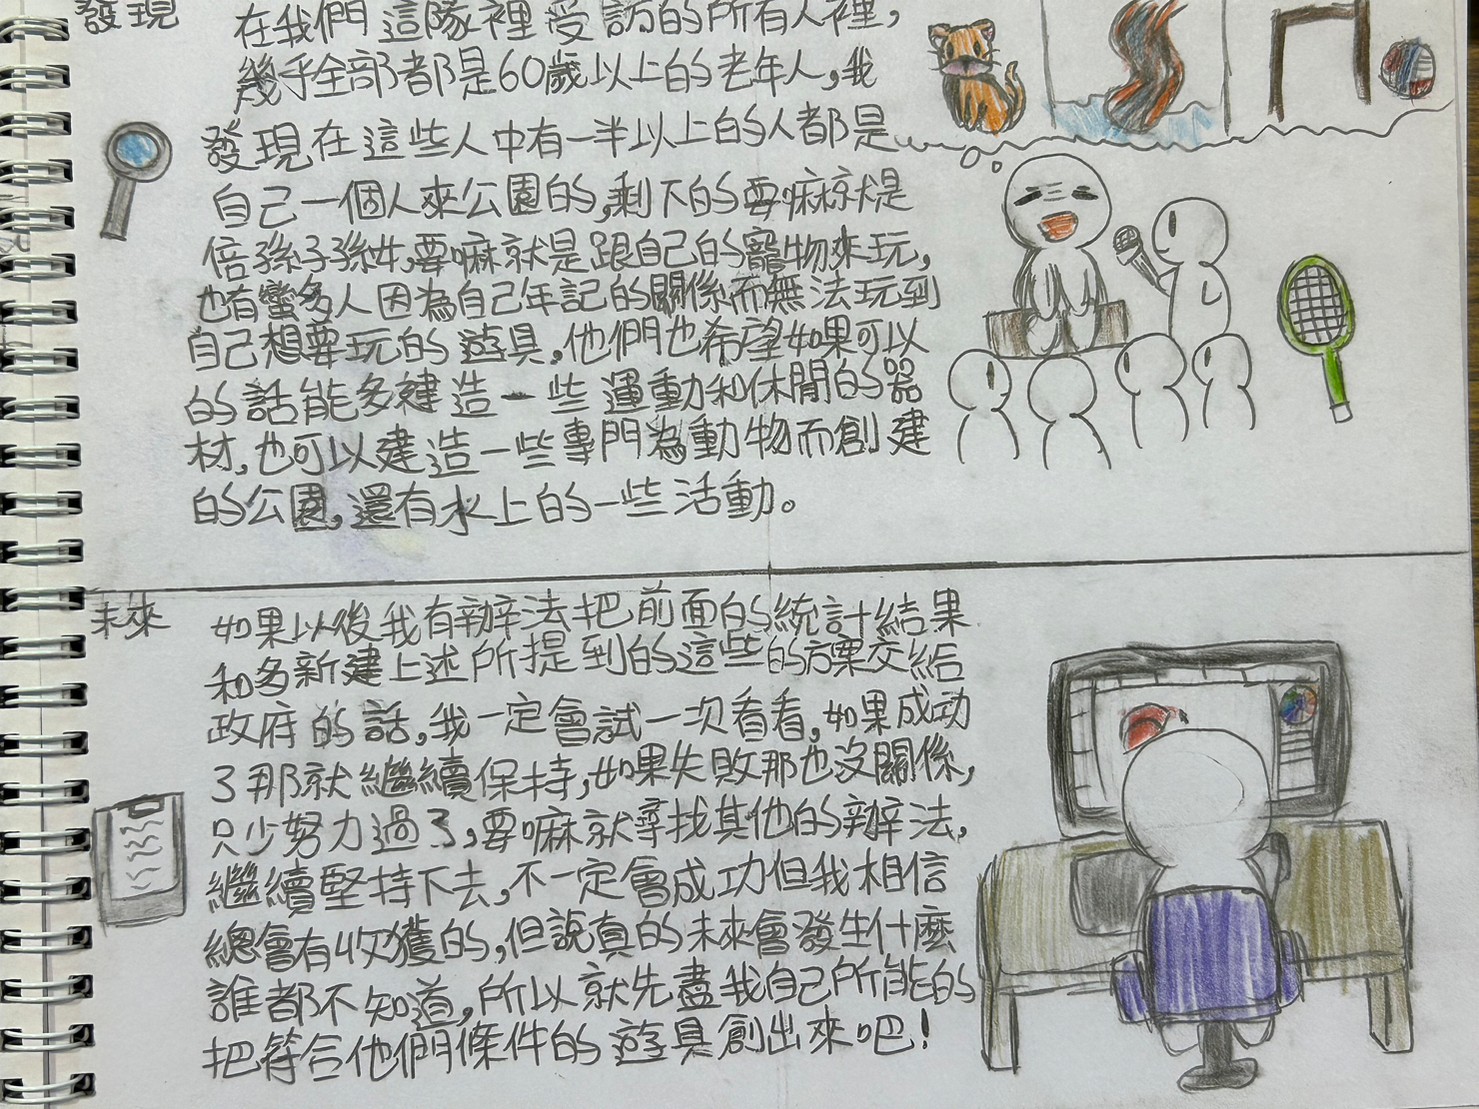 發現
在我們這隊裡受訪的所有人裡，
幾乎全部都是60歲以上的老年人，我
發現在這些人中有一半以上的人都是
自己一個人來公園的，剩下的要嘛就是
倍孫子孫女，要嘛就是跟自己的寵物來玩，
也有蠻多人因為自己年記的關係而無法玩到
自己想要玩的遊具，他們也希望如果可以
的話能多建造一些運動和休閒的器
材，也可以建造一些專門為動物而創建
的公園，還有水上的一些活動。
未來
如果以後我有辦法把前面的統計結果
和多新建上述所提到的這些的方案交給
政府的話，我一定會試一次看看，如果成功
了那就繼續保持，如果失敗那也沒關係，
只少努力過了，要嘛就尋找其他的辦法，
繼續堅持下去，不一定會成功但我相信
總會有收獲的，但說真的未來會發生什麼
誰都不知道，所以就先盡我自己所能的
把符合他們條件的遊具創出來吧！